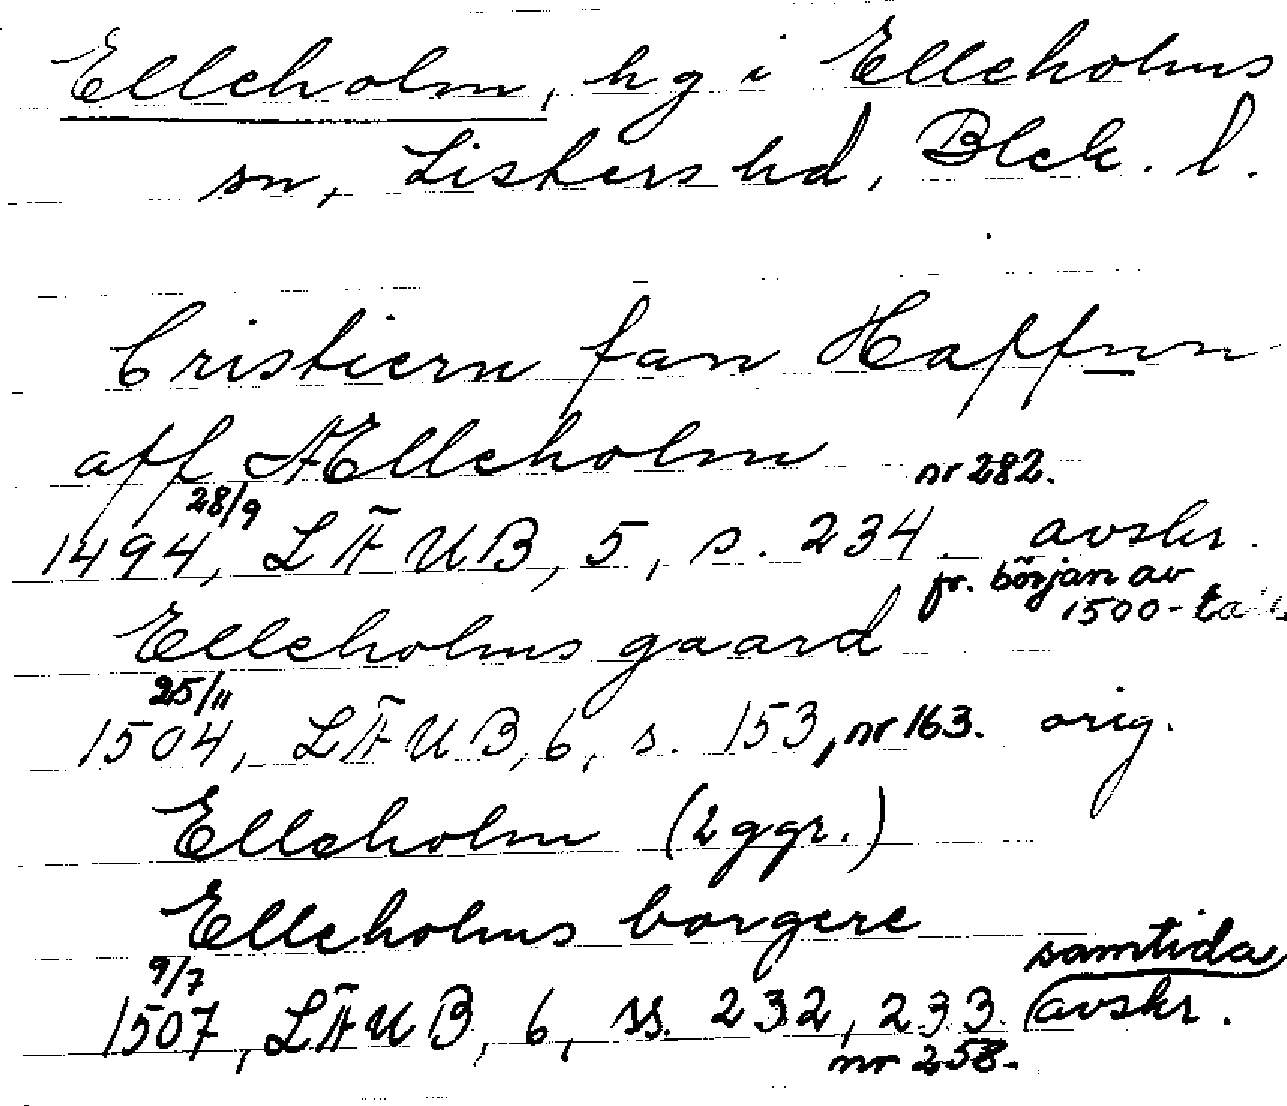 Elleholm, hg i Elleholms
sn, Listers hd, Blek. l.
Cristiern fan Haffnn
aff Ælleholm nr 282.
28/9
1494, LÄUB, 5, s. 234 avskr.
fr. början av
1500-talet
Elleholms gaard
25/11
1504, LÄUB, 6, s. 153, nr 163. orig.
Elleholm (2 ggr.)
Elleholms borgere
9/7 samtida
1507, LÄUB, 6, ss. 232, 233. avskr.
nr 258.